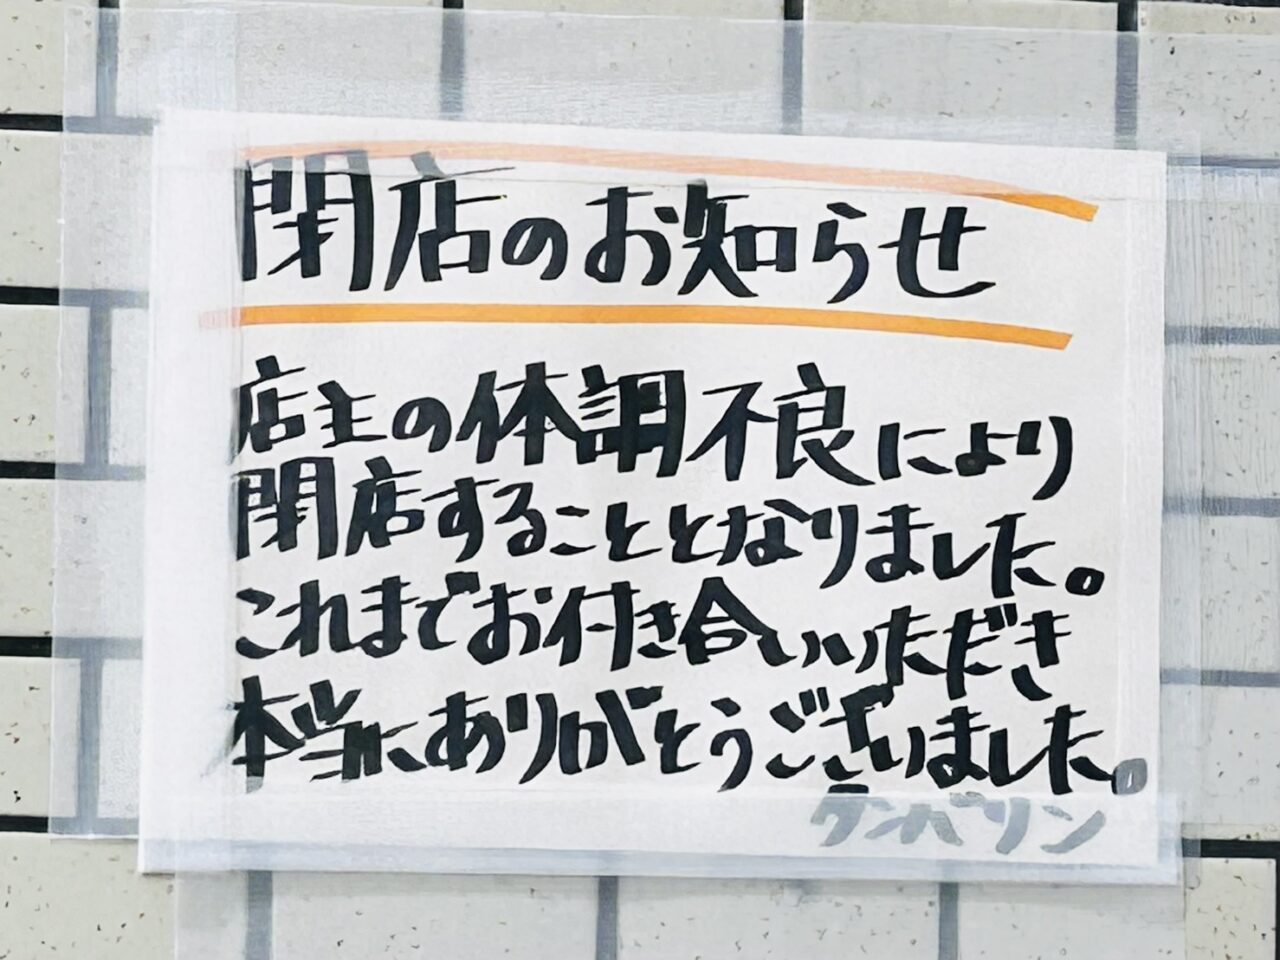 閉店のお知らせ
店主の体調不良により
閉店することとなりました。
これまでお付き合いいただき
本当にありがとうございました。
ランバリン